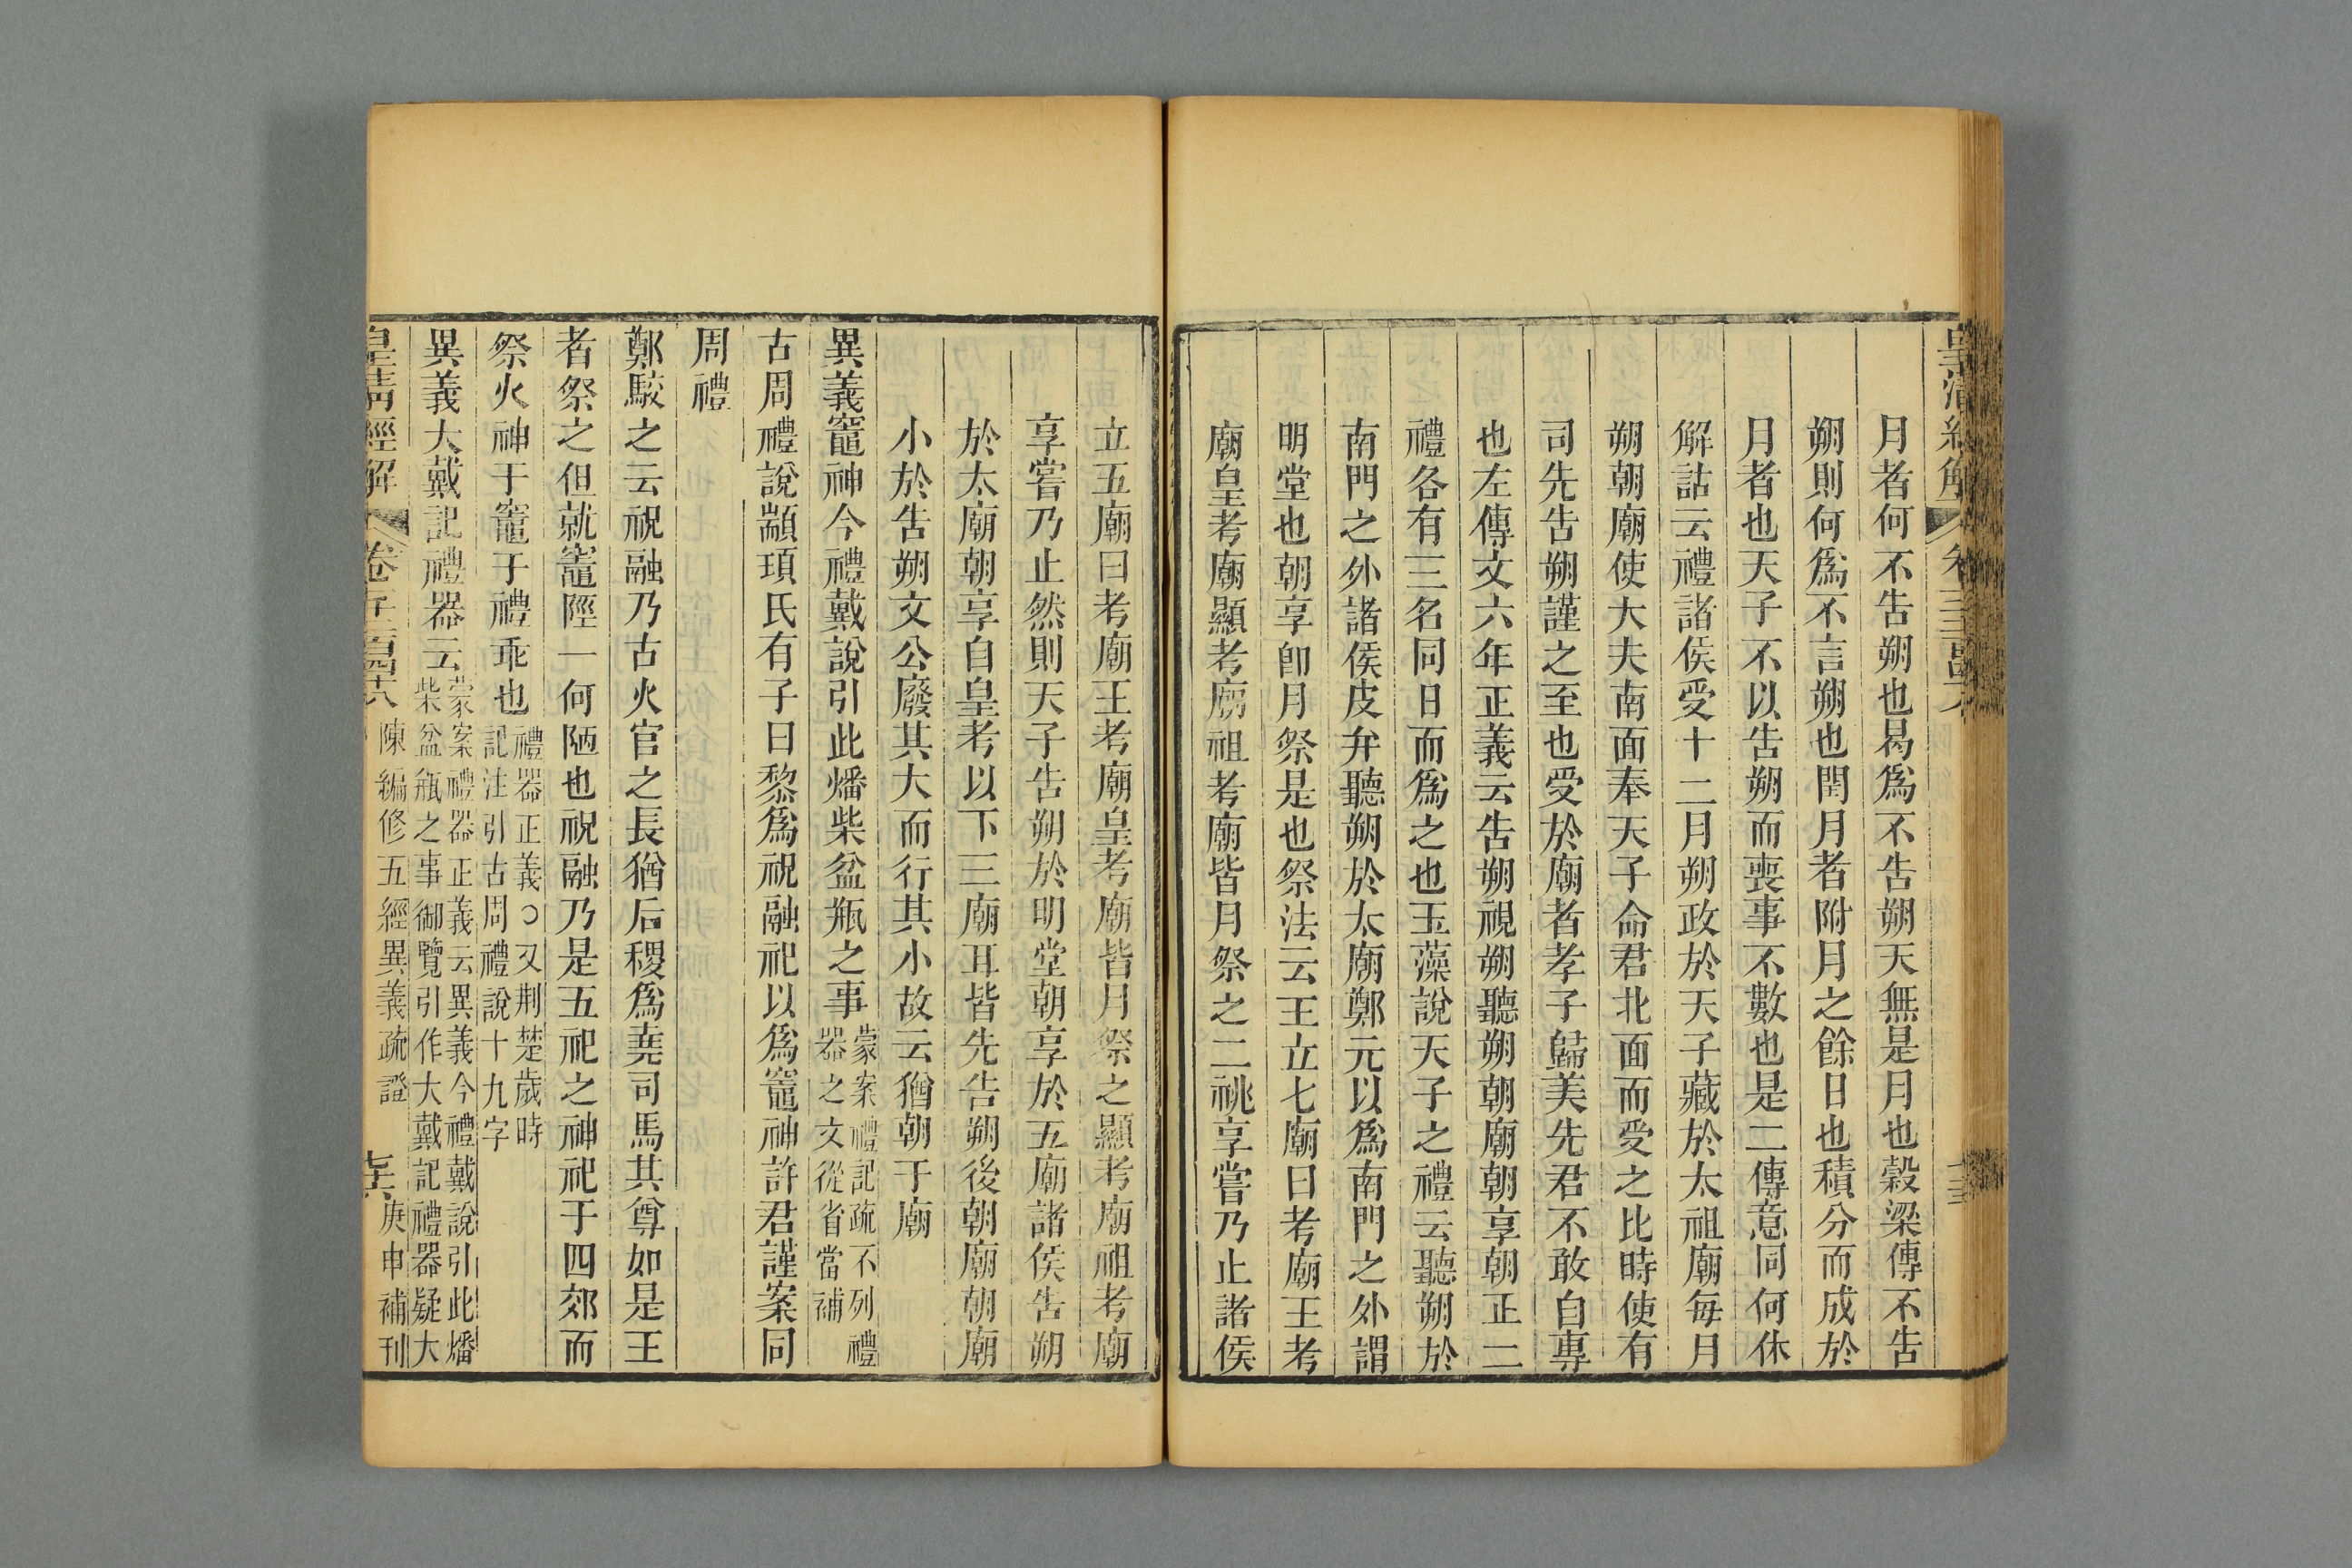 皇清經解
月者何不告朔也曷爲不告朔天無是月也穀梁傳不告
朔則何爲不言朔也閏月者附月之餘日也積分而成於
月者也天子不以告朔而喪事不數也是二傳意同何休
解詁云禮諸侯受十二月朔政於天子藏於太祖廟每月
朔朝廟使大夫南面奉天子命君北面而受之比時使有
司先告朔謹之至也受於廟者孝子歸美先君不敢自專
也左傳文六年正義云告朔視朔聽朔朝廟朝享朝正二
禮各有三名同日而爲之也玉藻說天子之禮云聽朔於
南門之外諸侯皮弁聽朔於太廟鄭元以爲南門之外謂
明堂也朝享卽月祭是也祭法云王立七廟曰考廟王考
廟皇考廟顯考廟祖考廟皆月祭之二祧享嘗乃止諸侯
立五廟曰考廟王考廟皇考廟皆月祭之顯考廟祖考廟
享嘗乃止然則天子告朔於明堂朝享於五廟諸侯告朔
於太廟朝享自皇考以下三廟耳皆先告朔後朝廟朝廟
小於告朔文公廢其大而行其小故云猶朝于廟
異義竈神今禮戴說引此燔柴盆瓶之事蒙案禮記疏不列禮
器之文從省當補
古周禮說顓頊氏有子曰黎爲祝融祀以爲竈神許君謹案同
周禮
鄭駁之云祝融乃古火官之長猶后稷爲堯司馬其尊如是王
者祭之但就竈陘一何陋也祝融乃是五祀之神祀于四郊而
祭火神于竈于禮乖也禮器正義○又荆楚歲時
記注引古周禮說十九字
異義大戴記禮器云蒙案禮器正義云異義今禮戴說引此燔
柴盆瓶之事御覽引作大戴記禮器疑大
皇清經解 陳編修五經異義疏證 庚申補刊